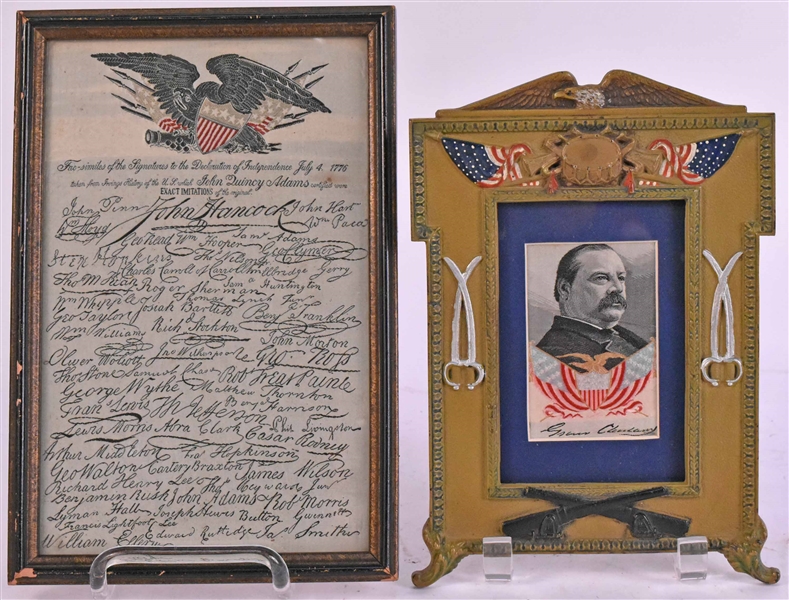 Fac-similes of the Signatures to the Declaration of Independence July 4. 1776
taken from Irvings History of the U.S. which John Quincy Adams certified were
EXACT IMITATIONS of the original.
John Penn John Hancock John Hart
Wm Floyd Wm Paca
Geo Read Wm Hooper Sam Adams Geo Clymer
Step Hopkins Tho
Charles Carroll of Carrollton Elbridge Gerry
Tho M Kean Roger Sherman Sam Huntington
Wm Whipple Thomas Lynch Junr
Geo Taylor Josiah Bartlett Benj Franklin
Wm Williams Rich Stockton
John Morton
Oliver Wolcott Jno Witherspoon Geo Ross
Tho Stone Samuel Chase Rob Treat Paine
George Wythe Matthew Thornton
Frans Lewis Th Jefferson Benj Harrison
Lewis Morris Abra Clark Phil Livingston
Casar Rodney
Arthur Middleton Fra Hopkinson
Geo Walton Carter Braxton James Wilson
Richard Henry Lee Thos Heyward Junr
Benjamin Rush John Adams Rob Morris
Lyman Hall Joseph Hewes Button Gwinnett
Francis Lightfoot Lee
William Ellery Edward Rutledge Jas Smith
Grover Cleveland